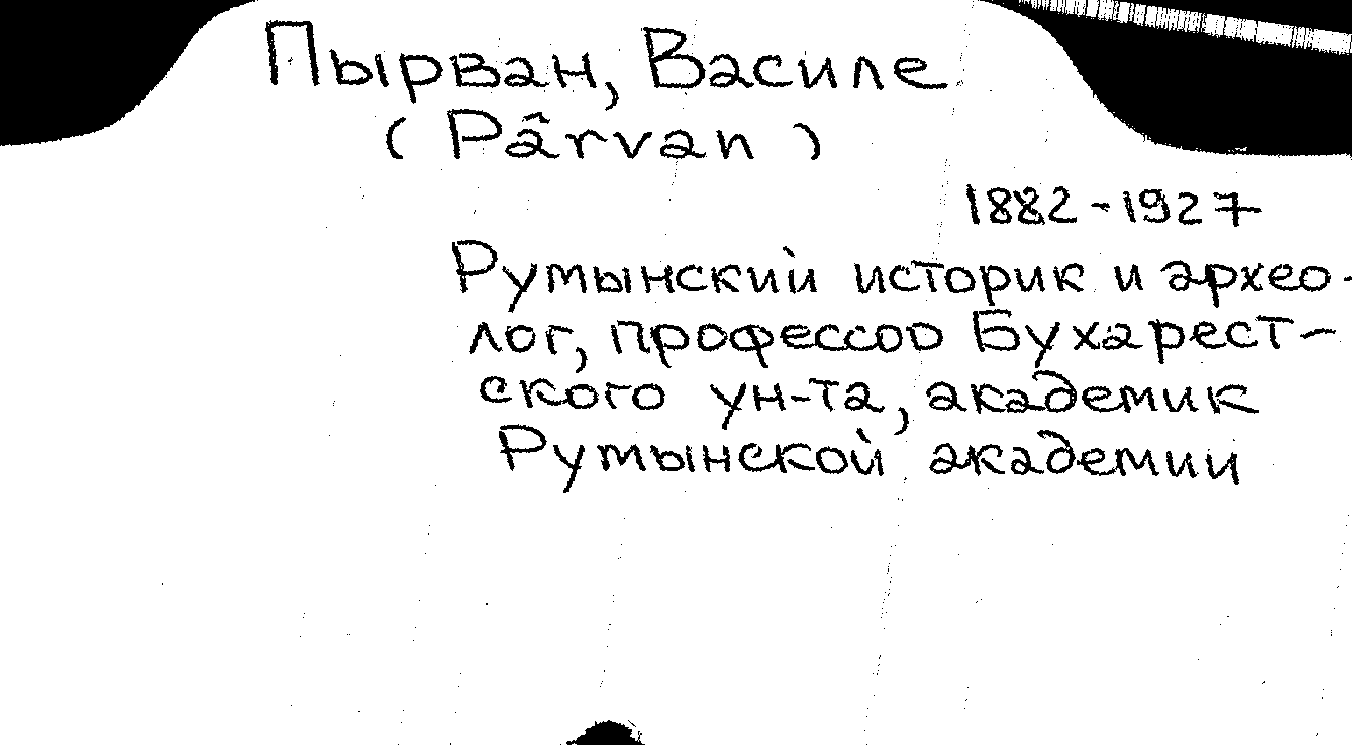 Пырван, Василе
(Pârvan)
1882-1927
Румынский историк и архео-
лог, профессор Бухарест-
ского ун-та, академик
Румынской академии